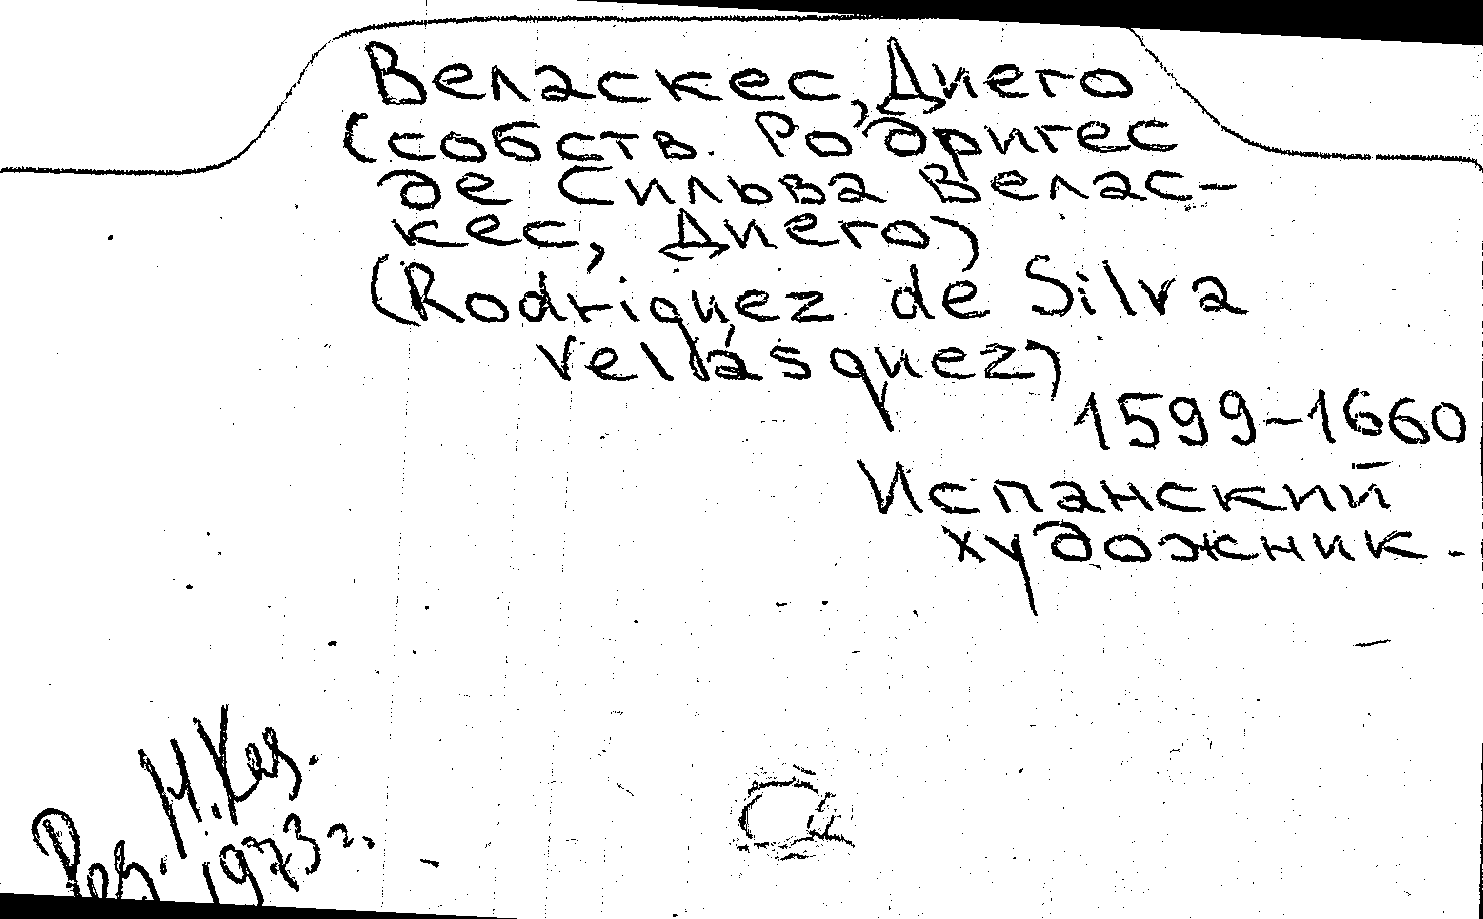 Веласкес, Диего
(собств. Родригес
де Сильва Велас-
кес, Диего)
(Rodriquez de Silva
Vellásquez)
1599-1660
Испанский
художник.
Ред.
1973 г.